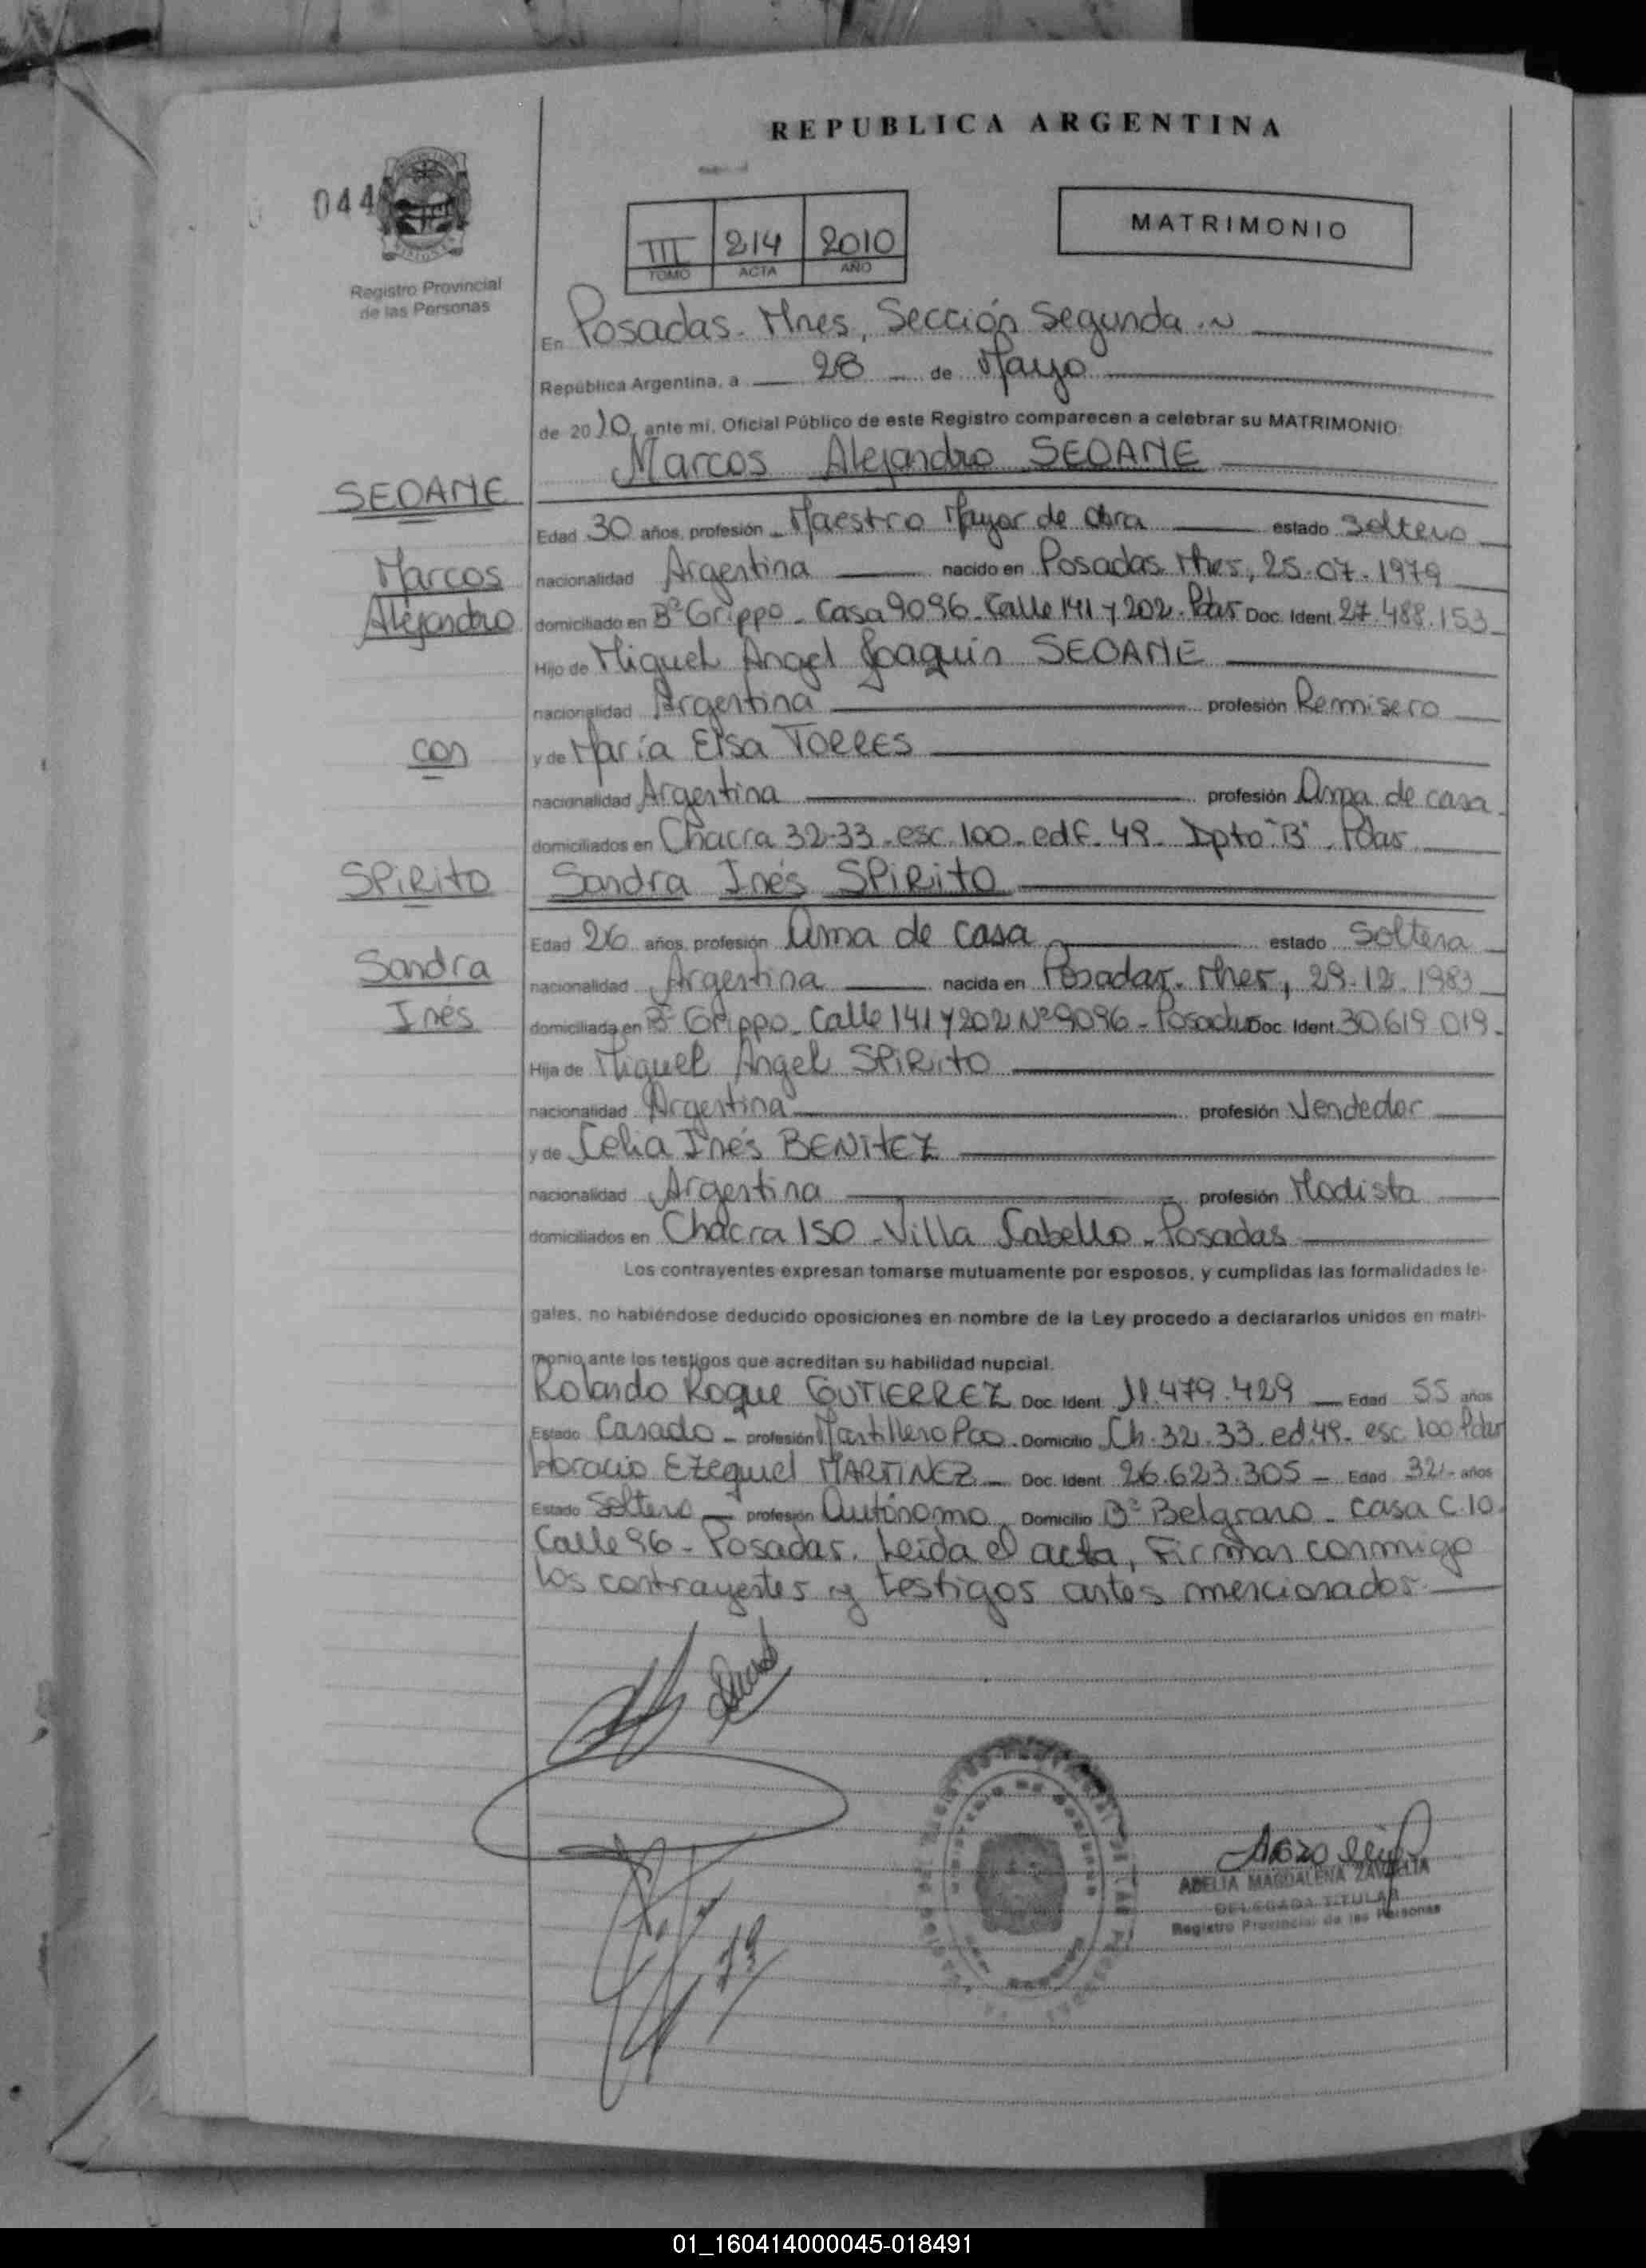 REPUBLICA ARGENTINA
044
MATRIMONIO
III 214 2010
TOMO ACTA AÑO
Registro Provincial
de las Personas
En Posadas. Mnes, Sección Segunda. ~
República Argentina, a 28 de Mayo
de 2010, ante mi, Oficial Público de este Registro comparecen a celebrar su MATRIMONIO:
Marcos Alejandro SEOANE
SEOANE
Edad 30 años, profesión Maestro Mayor de Obra estado Soltero
Marcos nacionalidad Argentina nacido en Posadas Mnes, 25.07.1979
Alejandro domiciliado en Bº Grippo - Casa 9096 - Calle 141 y 202. Pdas Doc. Ident. 27.488.153
Hijo de Miguel Angel Joaquín SEOANE
nacionalidad Argentina profesión Remisero
con y de María Elsa TORRES
nacionalidad Argentina profesión Ama de casa
domiciliados en Chacra 32-33 - esc. 100 - edf. 49 - Dpto "B". Pdas
SPIRITO Sandra Inés SPIRITO
Edad 26 años, profesión Ama de casa estado Soltera
Sandra nacionalidad Argentina nacida en Posadas. Mnes, 29.12.1983
Inés domiciliada en Bº Grippo - Calle 141 y 202 Nº 9096 - Posadas Doc. Ident. 30.619.019.
Hija de Miguel Angel SPIRITO
nacionalidad Argentina profesión Vendedor
y de Celia Inés BENITEZ
nacionalidad Argentina profesión Modista
domiciliados en Chacra 150 - Villa Cabello - Posadas
Los contrayentes expresan tomarse mutuamente por esposos, y cumplidas las formalidades le-
gales, no habiéndose deducido oposiciones en nombre de la Ley procedo a declararlos unidos en matri-
monio ante los testigos que acreditan su habilidad nupcial.
Rolando Roque GUTIERREZ Doc. Ident. 11.479.429 Edad 55 años
Estado Casado - profesión Martillero Pco. Domicilio Ch. 32.33. ed. 49 - esc. 100 Pdas
Horacio Ezequiel MARTINEZ - Doc. Ident. 26.623.305 - Edad 32 - años
Estado Soltero - profesión Autónomo Domicilio Bº Belgrano - casa C.10.
Calle 96 - Posadas. Leída el acta, Firman conmigo
los contrayentes y testigos antes mencionados.
ADELIA MAGDALENA
DELEGADA TITULAR
Registro Provincial de las Personas
01_160414000045-018491